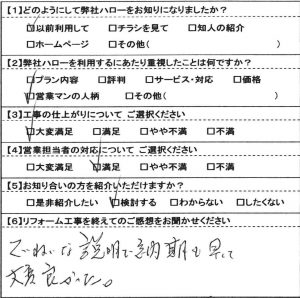 【1】どのようにして弊社ハローをお知りになりましたか?
☑以前利用して □チラシを見て □知人の紹介
□ホームページ □その他( )
【2】弊社ハローを利用するにあたり重視したことは何ですか?
☑プラン内容 □評判 □サービス・対応 □価格
☑営業マンの人柄 □その他( )
【3】工事の仕上がりについて ご選択ください
☑大変満足 □満足 □やや不満 □不満
【4】営業担当者の対応について ご選択ください
□大変満足 ☑満足 □やや不満 □不満
【5】お知り合いの方を紹介いただけますか?
□是非紹介したい ☑検討する □わからない □したくない
【6】リフォーム工事を終えてのご感想をお聞かせください
ていねいな説明で納期も早くて
大変良かった。